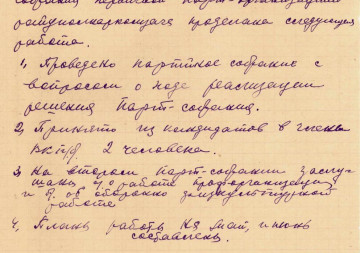 собрания первичной парт-организации
райуполнаркомзага проделана следующая
работа.
1, Проведено партийное собрание с
вопросом о ходе реализации
решения парт-собрания.
2, Принято из кандидатов в члены
ВКП/б/ 2 человека.
3, На втором парт-собрании заслу-
шали, 1, о работе профорганизации
и 2, об оборонно физкультурной
работе
4, Планы работы на май, июнь
составлены.